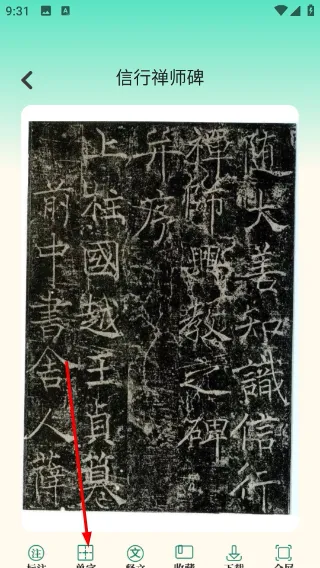 9:31
A
信行禅师碑
隨大善知識信行
禪師興教之碑
并序
上柱國越王貞撰
前中書舍人薛
注
文
标注
单字
释文
收藏
下载
全屏